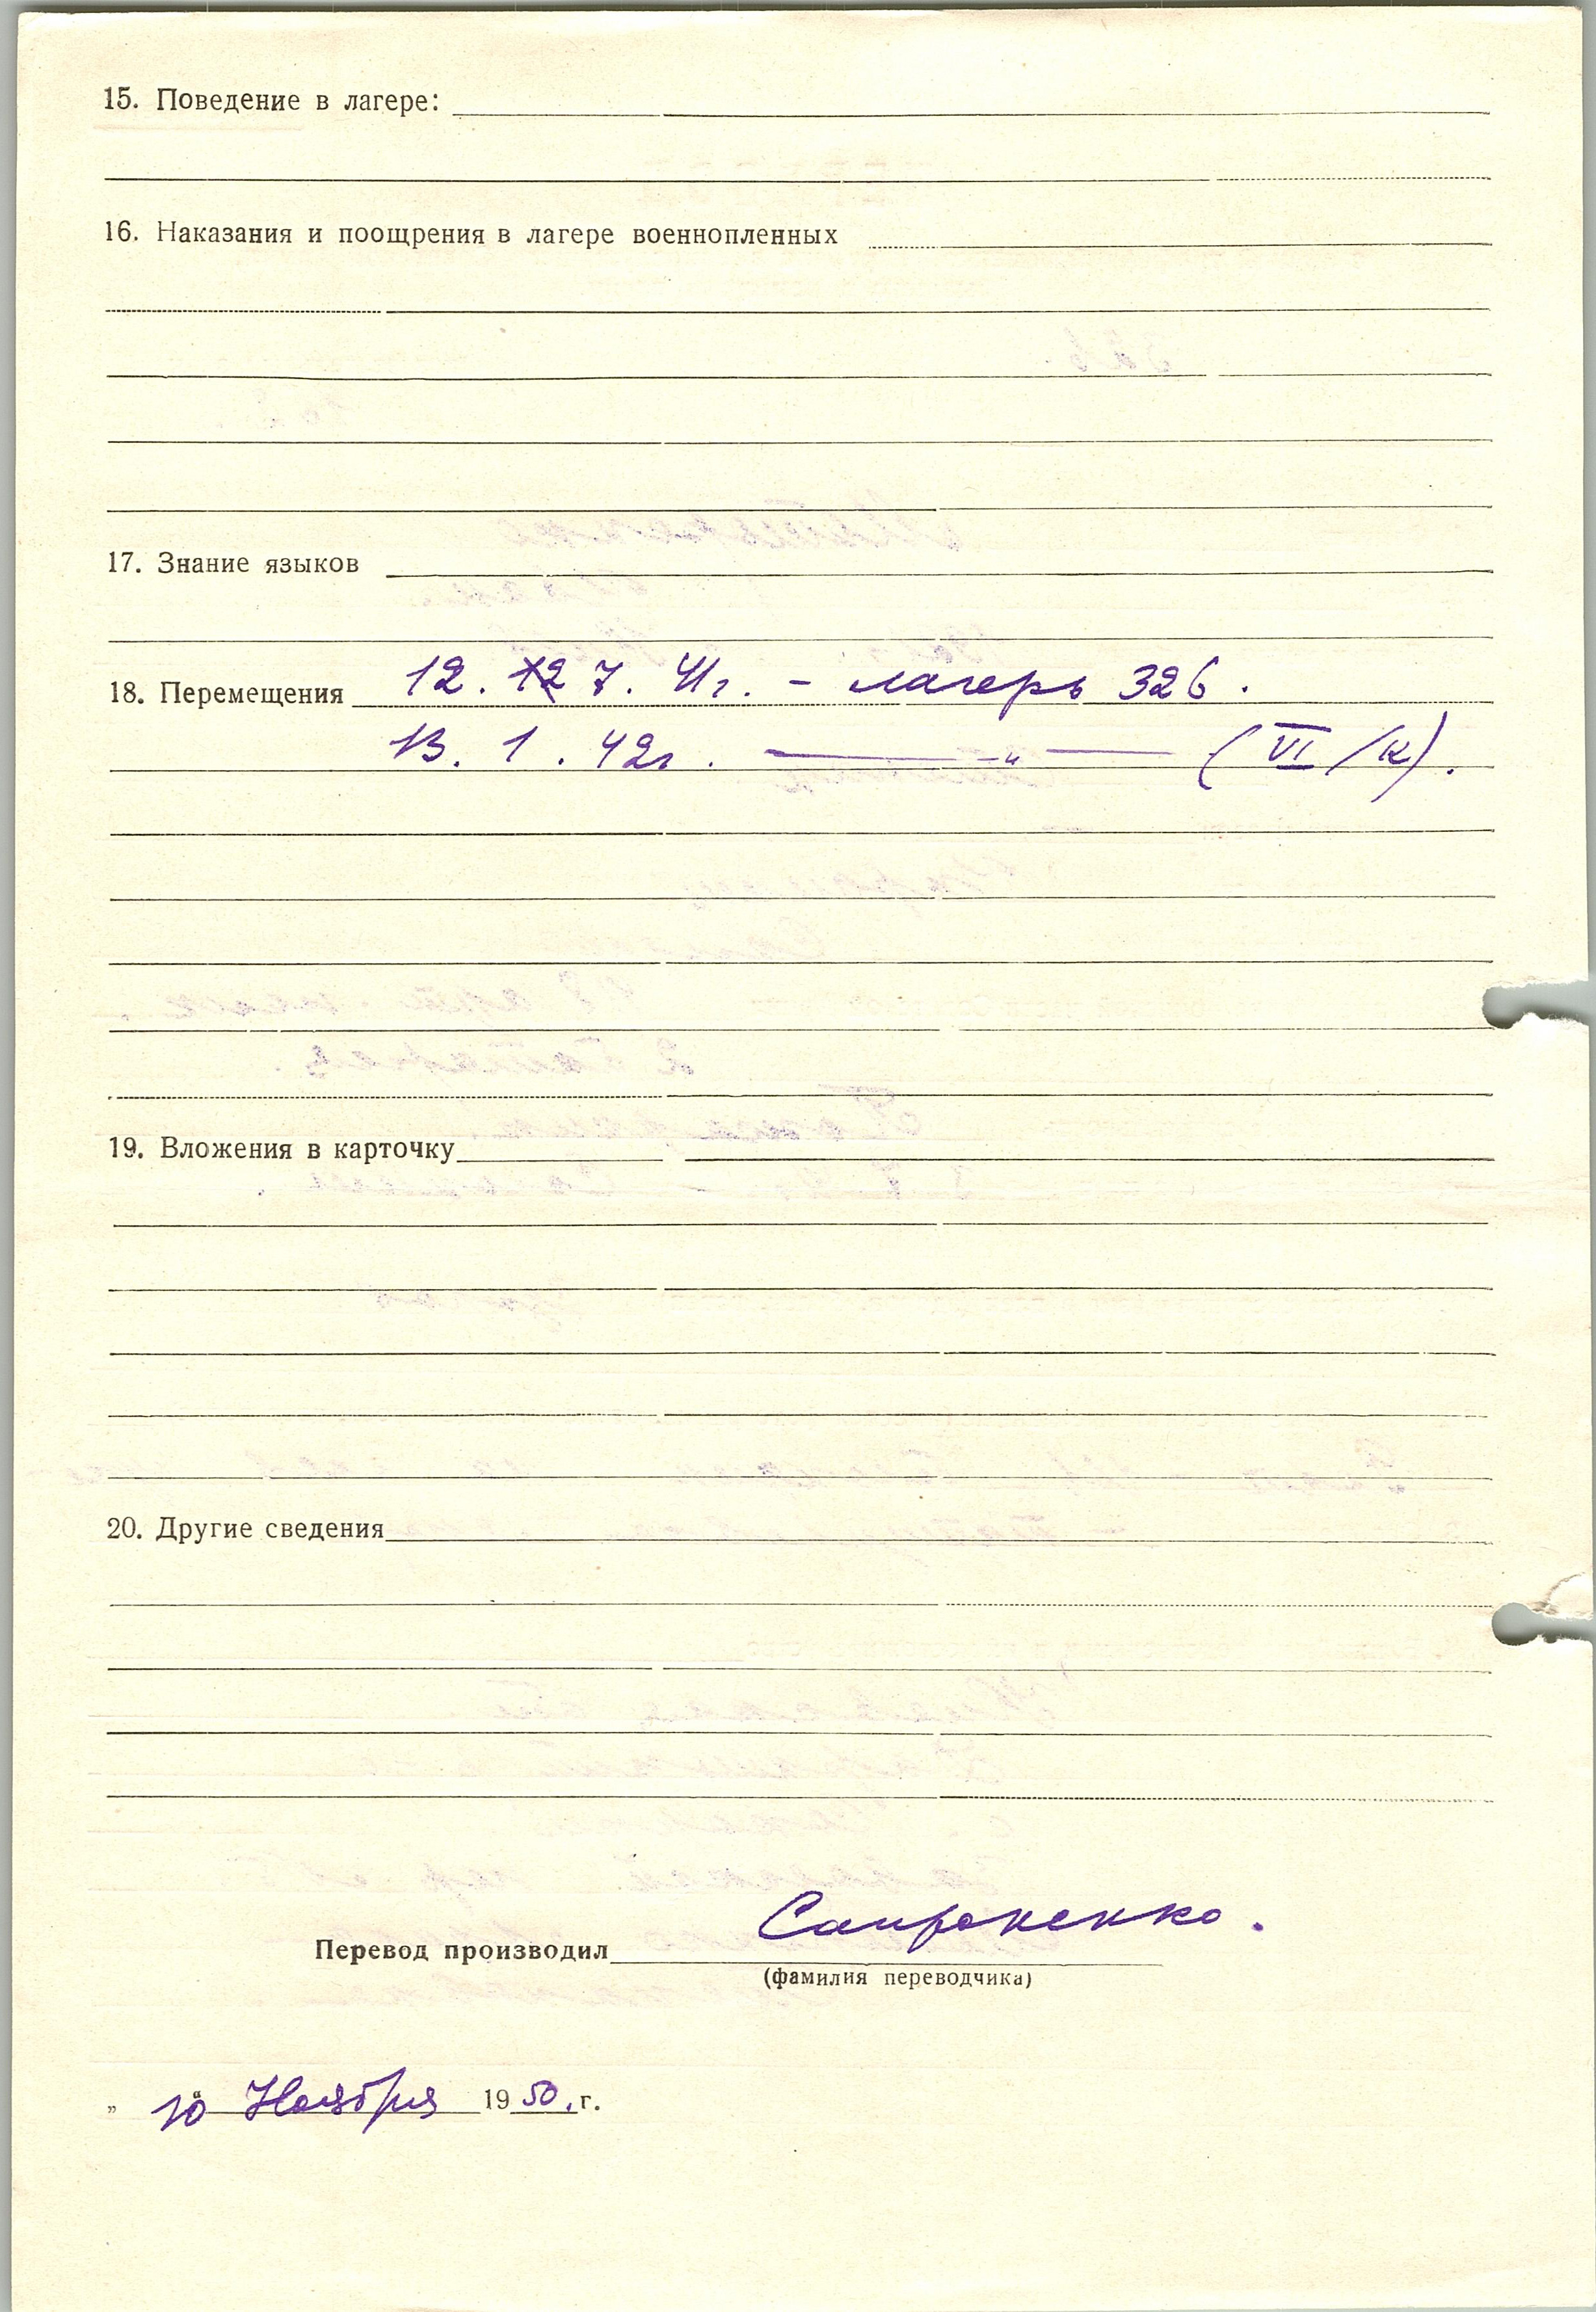 15. Поведение в лагере:
16. Наказания и поощрения в лагере военнопленных
17. Знание языков
18. Перемещения 12. 12 7. 41г. – лагерь 326.
13. 1. 42г. —— " —— (VI/К).
19. Вложения в карточку
20. Другие сведения
Перевод производил Сапроненко.
(фамилия переводчика)
„ 10 " Ноября 1950. г.